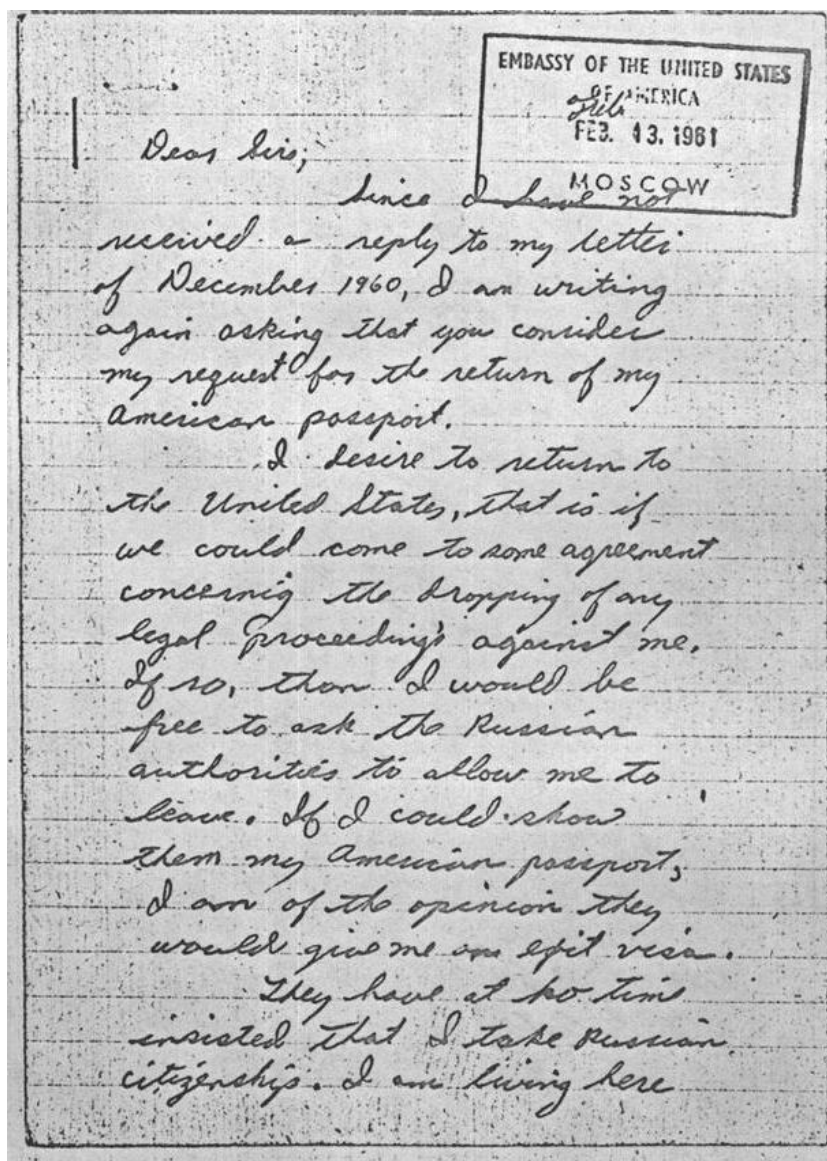 EMBASSY OF THE UNITED STATES
OF AMERICA
FEB. 13. 1961
MOSCOW
Dear Sirs;
Since I have not
received a reply to my letter
of December 1960, I am writing
again asking that you consider
my request for the return of my
American passport.
I desire to return to
the United States, that is if
we could come to some agreement
concernig the dropping of any
legal proceedings against me.
If so, than I would be
free to ask the Russian
authorities to allow me to
leave. If I could show
them my American passport,
I am of the opinion they
would give me an exit visa.
They have at no time
insisted that I take Russian
citizenship. I am living here